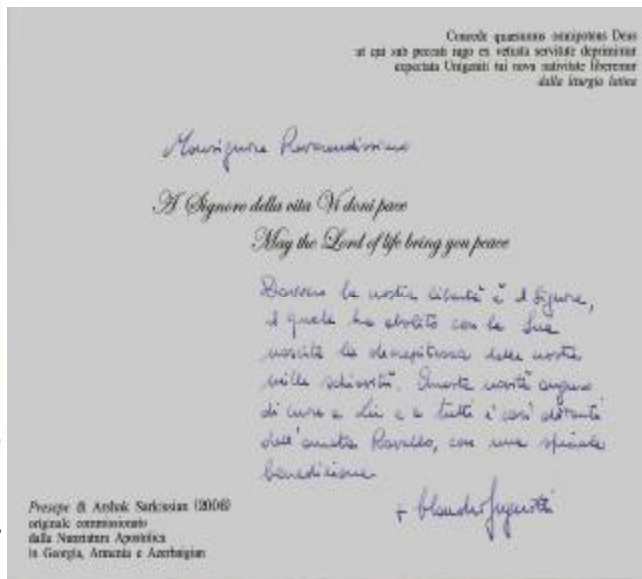 Concede quæsumus omnipotens Deus
ut qui sub peccati iugo ex vetusta servitute deprimimur
expectata Unigeniti tui nova nativitate liberemur
dalla liturgia latina
Monsignore Reverendissimo
Il Signore della vita Vi doni pace
May the Lord of life bring you peace
Davvero la nostra libertà è il Signore,
il quale ha abolito con la Sua
nascita la decrepitezza della nostra
mille schiavitù. Questa novità auguro
di cuore a Lei e a tutti i cari abitanti
dell'amata Ravello, con una speciale
benedizione
+ Claudio Gugerotti
Presepe di Arshak Sarkissian (2006)
originale commissionato
dalla Nunziatura Apostolica
in Georgia, Armenia e Azerbaigian